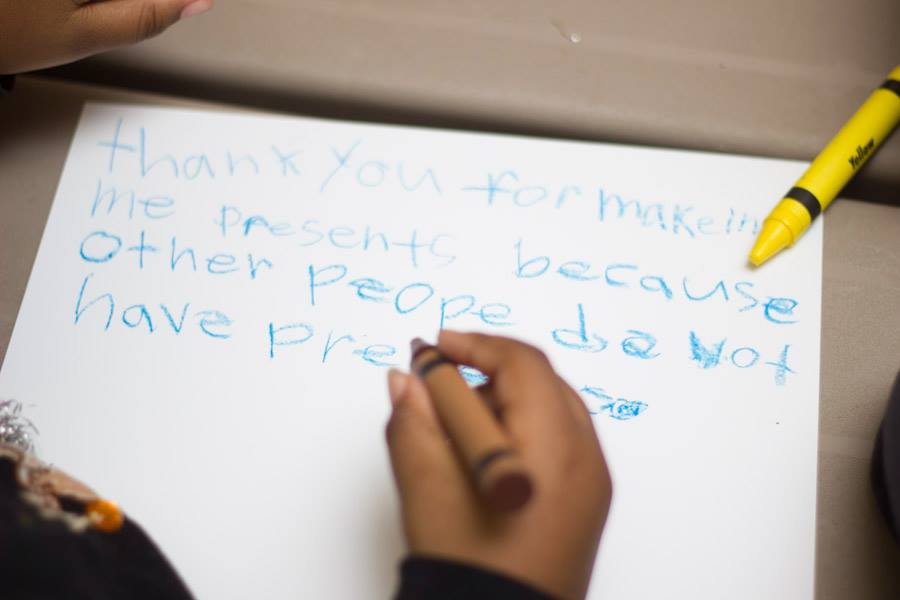 thank you for makeing
me presents because
other peope do not
have pre
Yellow